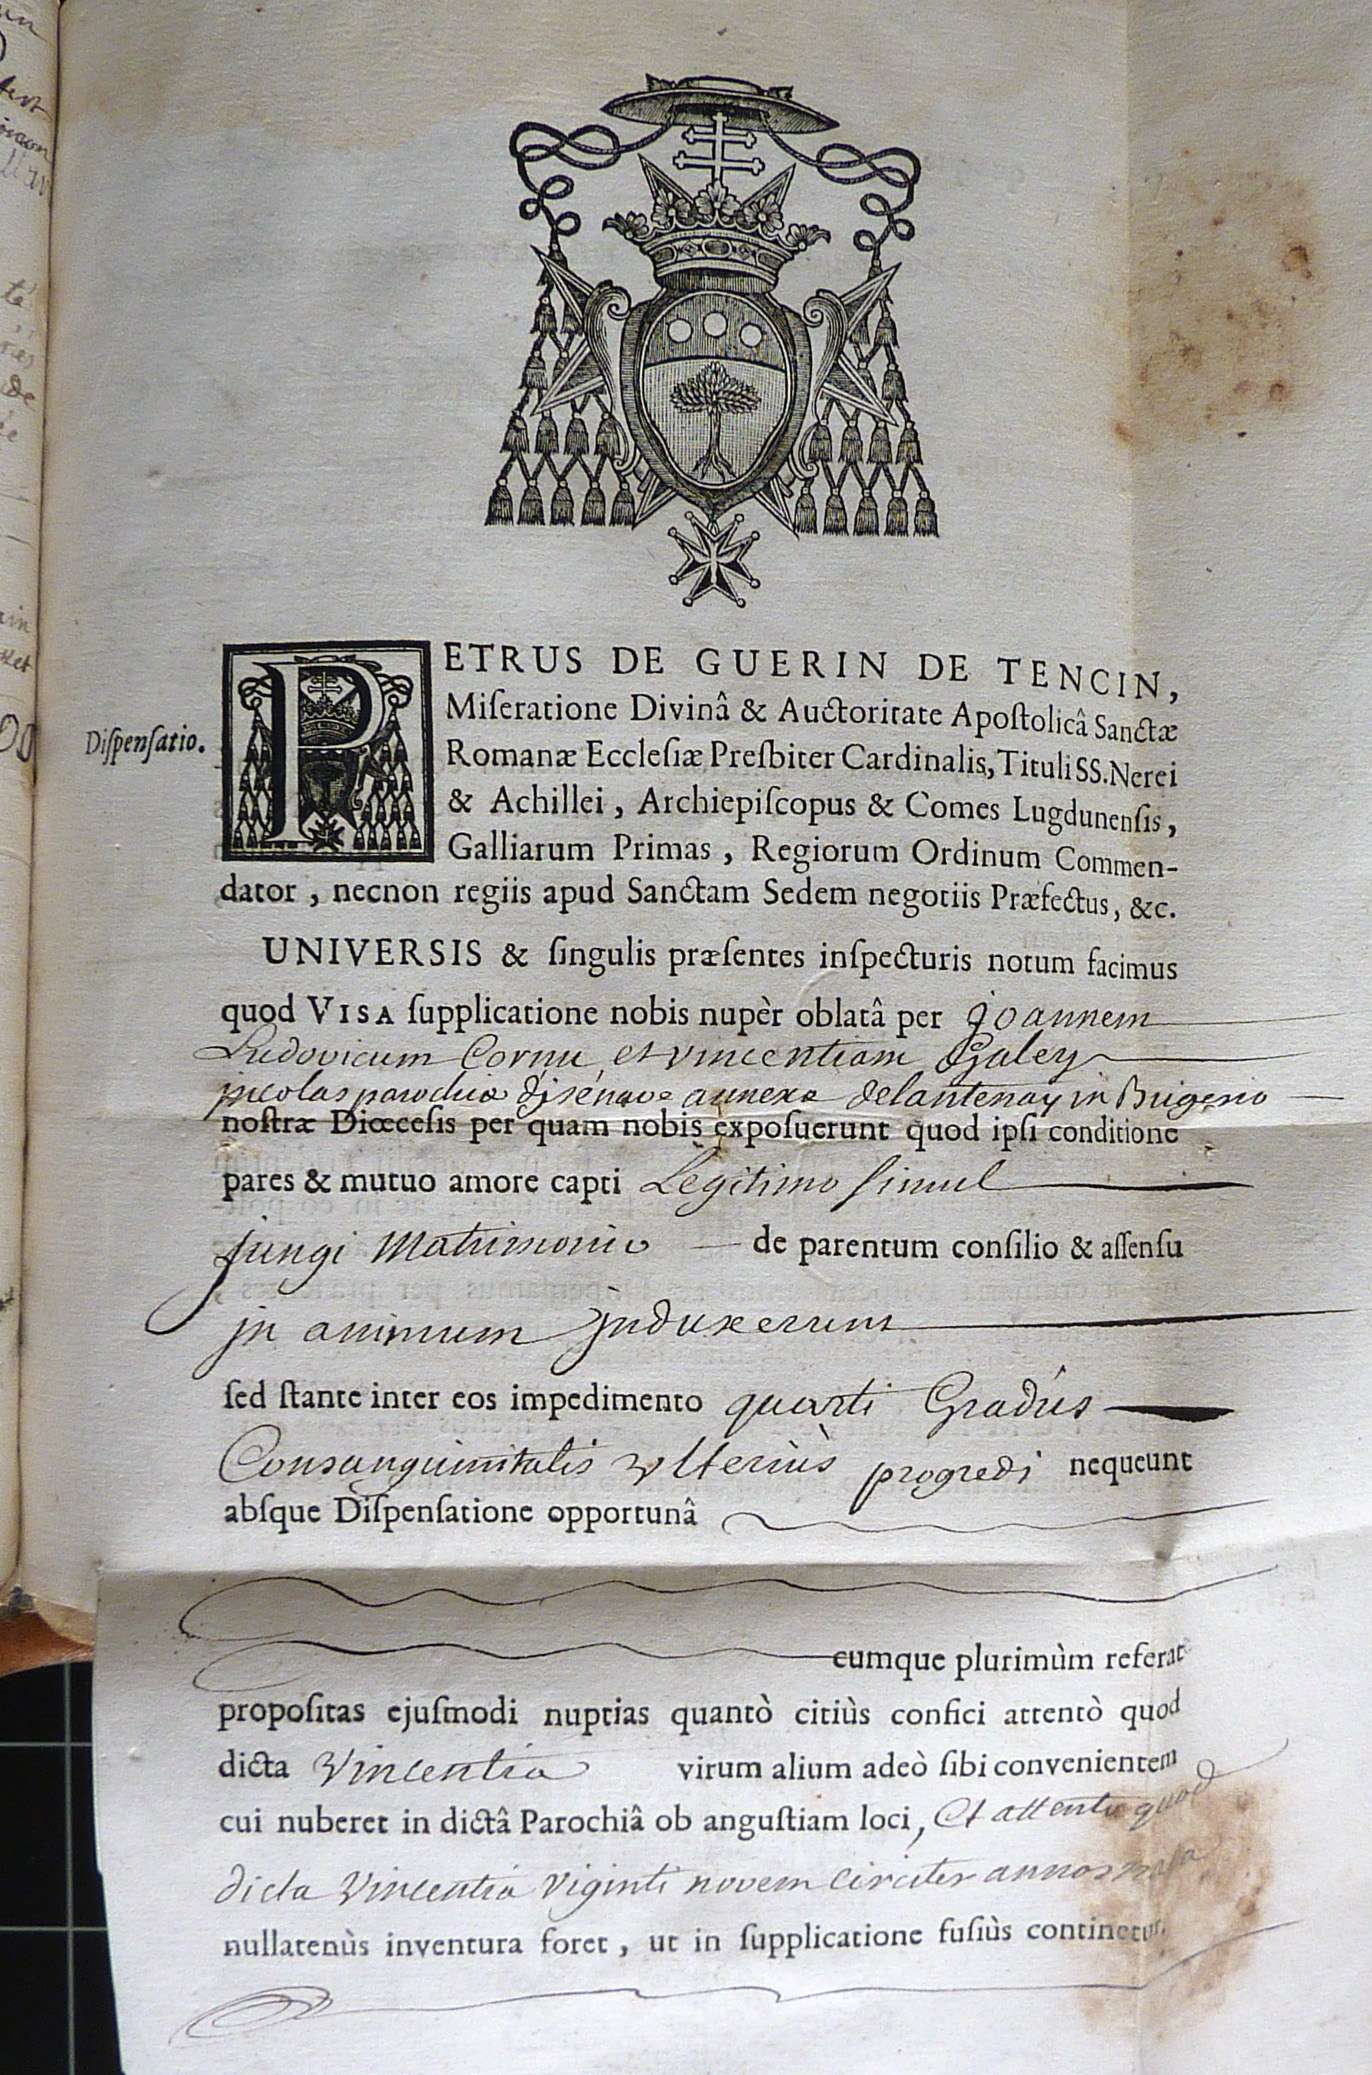 PETRUS DE GUERIN DE TENCIN,
Miſeratione Divinâ & Auctoritate Apoſtolicâ Sanctæ
Diſpenſatio.
Romanæ Eccleſiæ Preſbiter Cardinalis, Tituli SS. Nerei
& Achillei, Archiepiſcopus & Comes Lugdunenſis,
Galliarum Primas, Regiorum Ordinum Commen-
dator, necnon regiis apud Sanctam Sedem negotiis Præfectus, &c.
UNIVERSIS & ſingulis præſentes inſpecturis notum facimus
quod VISA ſupplicatione nobis nupèr oblatâ per joannem
Ludovicum Cornu, et vincentiam Galey
incolas parochiæ annexæ delantenay in Brigesio
noſtræ Diœceſis per quam nobis expoſuerunt quod ipſi conditione
pares & mutuo amore capti Legitimo simul
jungi Matrimonio de parentum conſilio & aſſenſu
in animum induxerunt
ſed ſtante inter eos impedimento quarti Gradûs
Consanguinitatis ulteriùs progredi nequeunt
abſque Diſpenſatione opportunâ
cumque plurimùm referat
propoſitas ejuſmodi nuptias quantò citiùs confici attentò quod
dicta Vincentia virum alium adeò ſibi convenientem
cui nuberet in dictâ Parochiâ ob anguſtiam loci, Et attento quod
dicta Vincentia Viginti novem circiter annos nata
nullatenùs inventura foret, ut in ſupplicatione fuſiùs continetur.